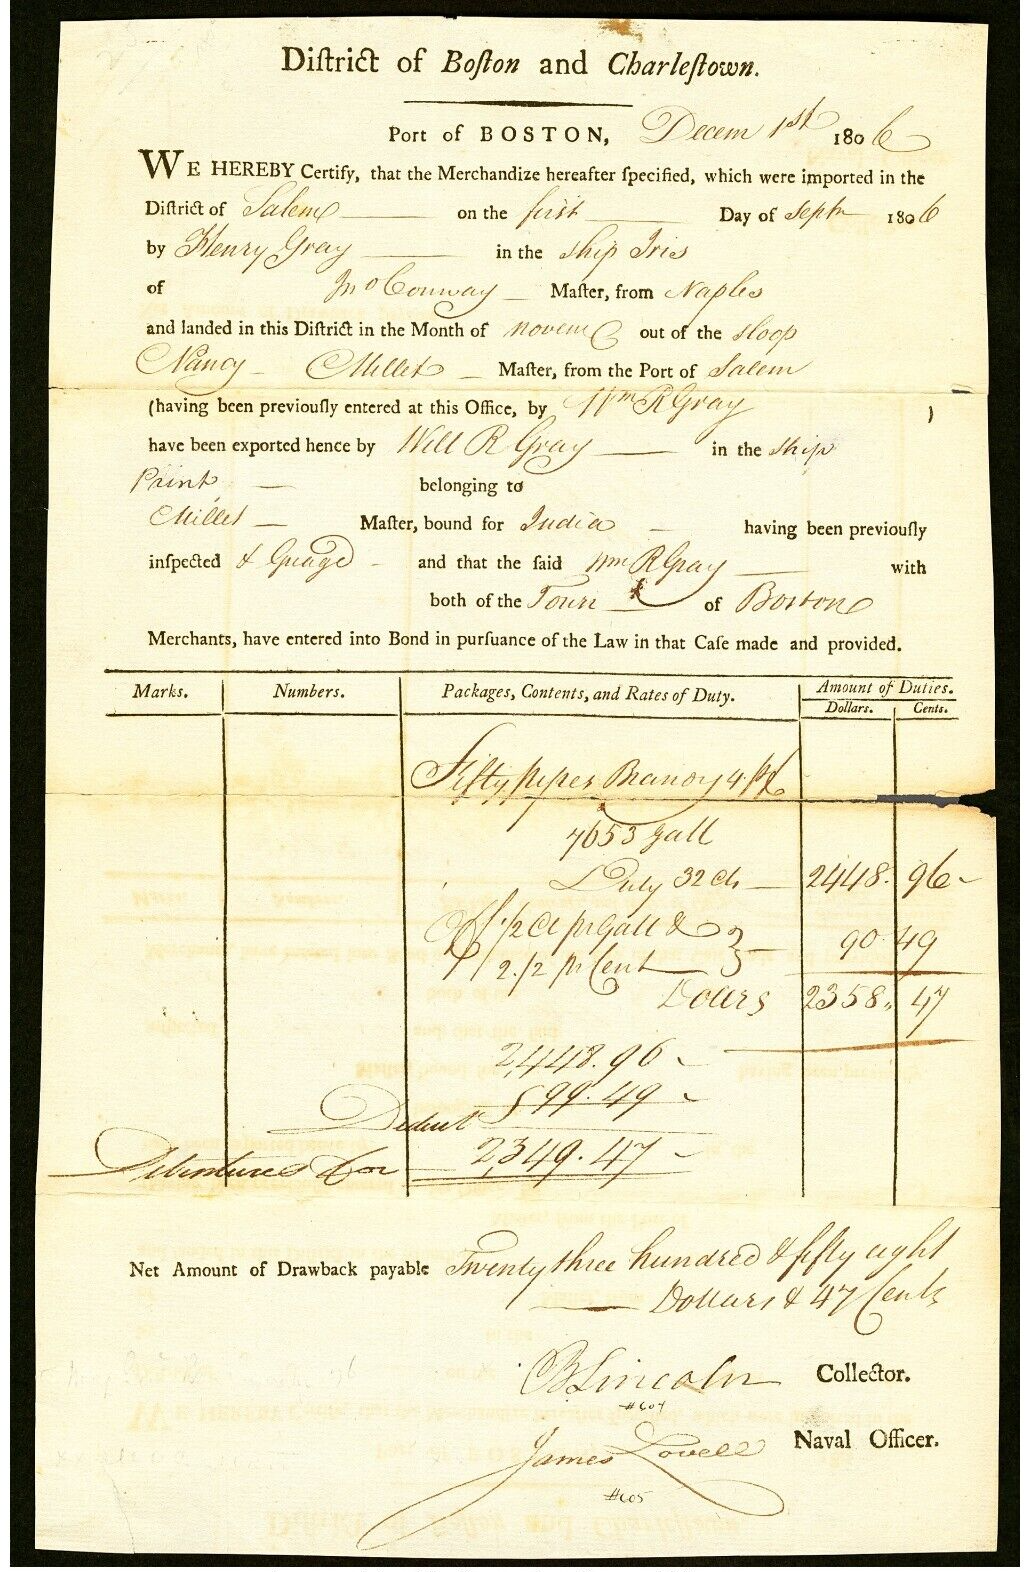 Diſtrict of Boſton and Charleſtown.
Port of BOSTON, Decem 1st 1806
WE HEREBY Certify, that the Merchandize hereafter ſpecified, which were imported in the
Diſtrict of Salem on the first Day of Septr 1806
by Henry Gray in the Ship Iris
of Jno Conway Maſter, from Naples
and landed in this Diſtrict in the Month of Novem out of the Sloop
Nancy Millet Maſter, from the Port of Salem
(having been previouſly entered at this Office, by Wm R Gray )
have been exported hence by Will R Gray in the Ship
Print belonging to
Millet Maſter, bound for India having been previouſly
inſpected & Guaged and that the ſaid Wm R Gray with
both of the Town of Boston
Merchants, have entered into Bond in purſuance of the Law in that Caſe made and provided.
Marks. Numbers. Packages, Contents, and Rates of Duty. Amount of Duties.
Dollars. Cents.
Fifty pipes Brandy 4. pf
7653 Gall
Duty 32 Cts 2448. 96
Off 1/2 Ct pr Gall &
2 1/2 pr Cent 90 49
Dollers 2358. 47
2,448.96
Deduct 99.49
Debentures for 2,349.47
Net Amount of Drawback payable Twenty three hundred & fifty eight
Dollars & 47 Cents
B Lincoln Collector.
#604
James Lovell Naval Officer.
#605